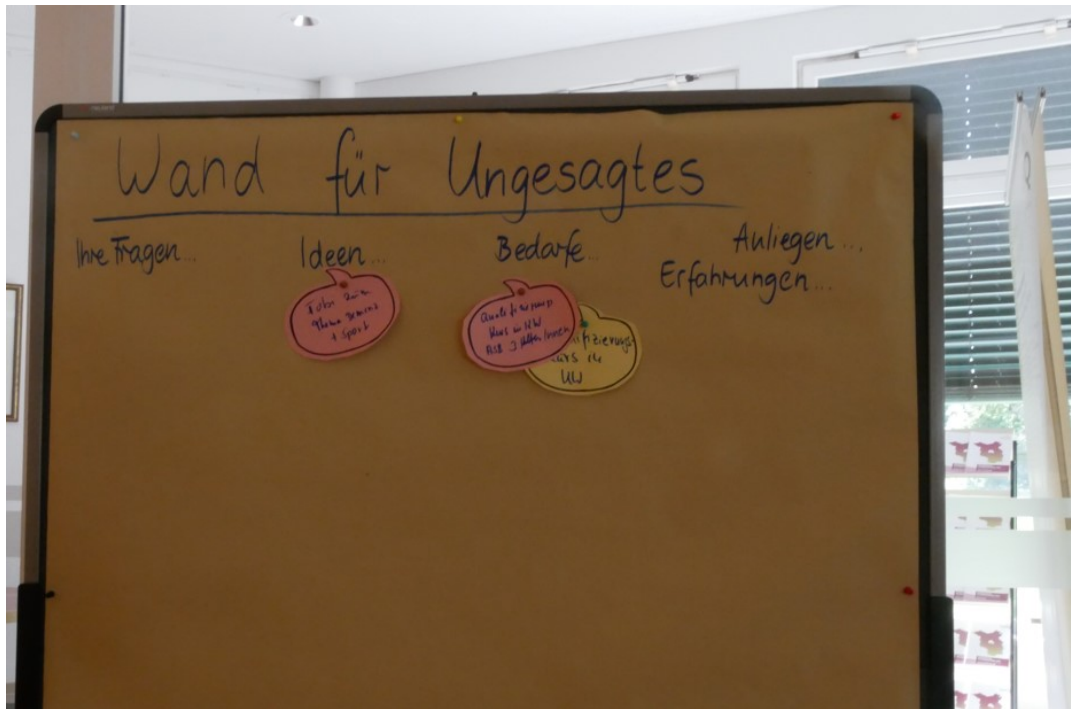 Wand für Ungesagtes
Ihre Fragen...
Ideen...
Bedarfe...
Anliegen...
Erfahrungen...
Thema Demenz
+ Sport
Qualifizierungs
Kurs in NW
ASB 3 Helfer/innen
fizierungs-
kurs in
NW